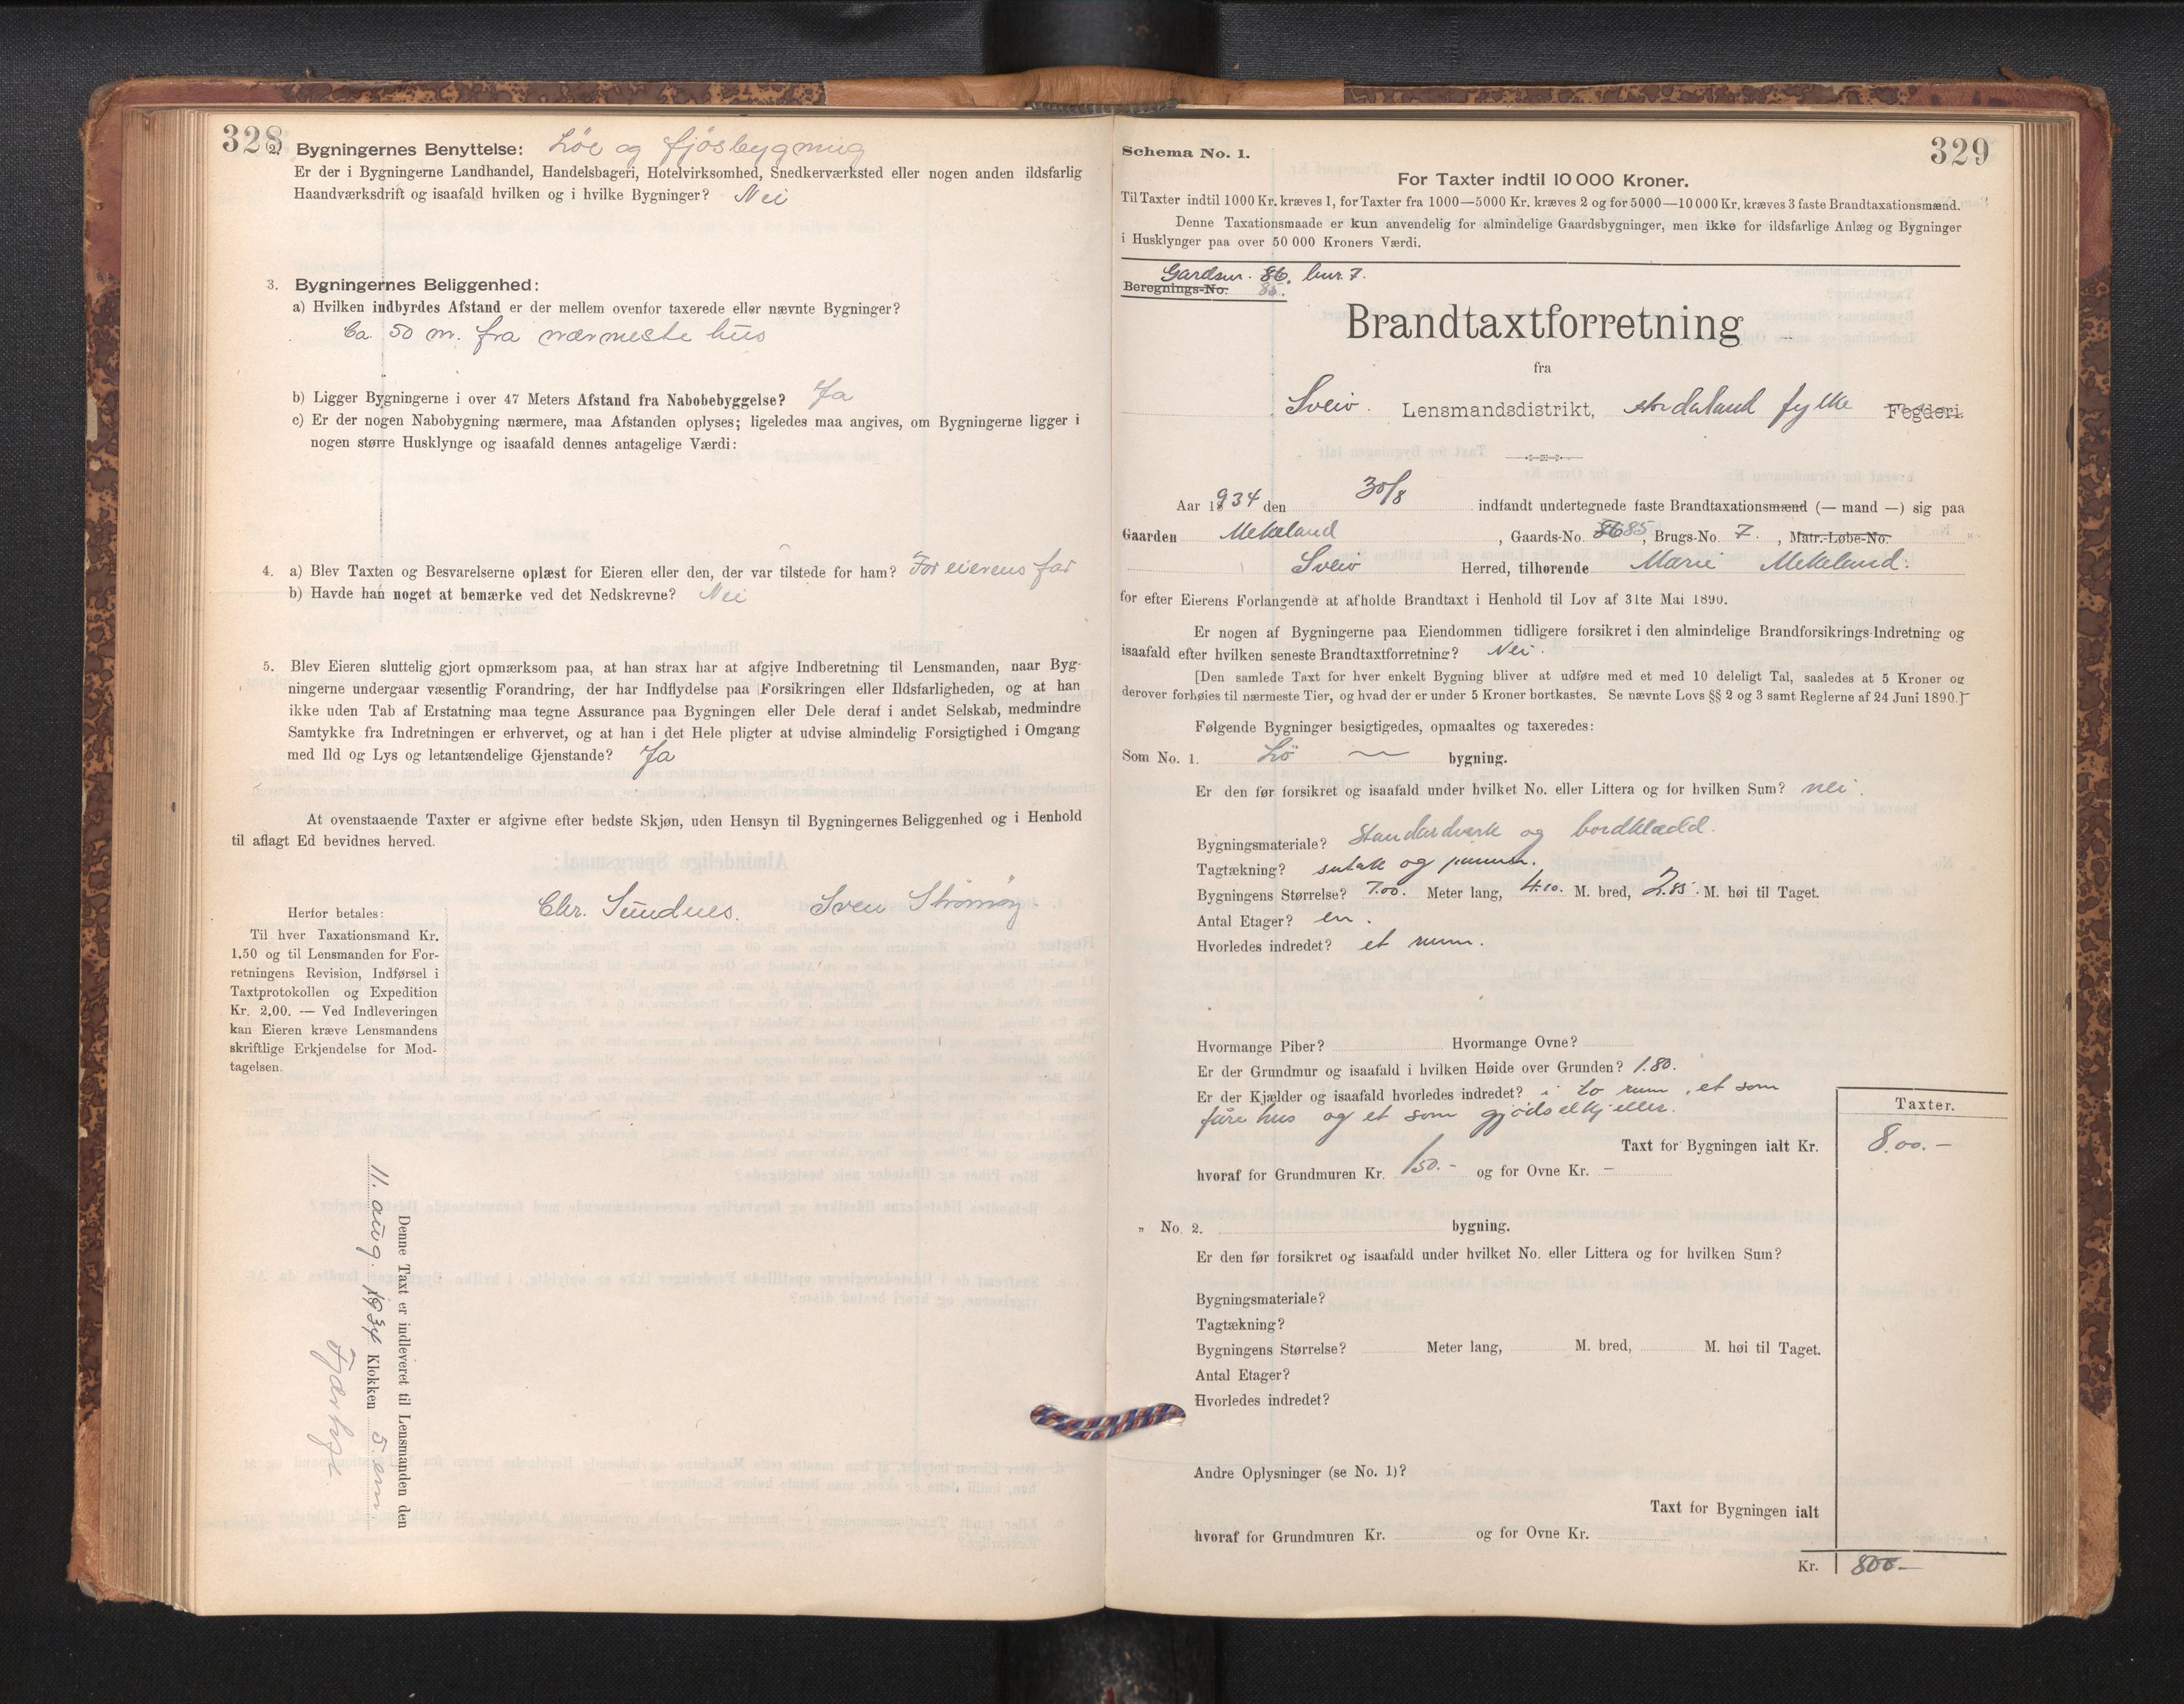 328
2. Bygningernes Benyttelse: Löe og fjösbygning
Er der i Bygningerne Landhandel, Handelsbageri, Hotelvirksomhed, Snedkerværksted eller nogen anden ildsfarlig
Haandværksdrift og isaafald hvilken og i hvilke Bygninger? Nei
3. Bygningernes Beliggenhed:
a) Hvilken indbyrdes Afstand er der mellem ovenfor taxerede eller nævnte Bygninger?
Ca. 50 m. fra nærmeste hus
b) Ligger Bygningerne i over 47 Meters Afstand fra Nabobebyggelse? Ja
c) Er der nogen Nabobygning nærmere, maa Afstanden oplyses; ligeledes maa angives, om Bygningerne ligger i
nogen større Husklynge og isaafald dennes antagelige Værdi:
4. a) Blev Taxten og Besvarelserne oplæst for Eieren eller den, der var tilstede for ham? For eierens far
b) Havde han noget at bemærke ved det Nedskrevne? Nei
5. Blev Eieren sluttelig gjort opmærksom paa, at han strax har at afgive Indberetning til Lensmanden, naar Byg-
ningerne undergaar væsentlig Forandring, der har Indflydelse paa Forsikringen eller Ildsfarligheden, og at han
ikke uden Tab af Erstatning maa tegne Assurance paa Bygningen eller Dele deraf i andet Selskab, medmindre
Samtykke fra Indretningen er erhvervet, og at han i det Hele pligter at udvise almindelig Forsigtighed i Omgang
med Ild og Lys og letantændelige Gjenstande? Ja
At ovenstaaende Taxter er afgivne efter bedste Skjøn, uden Hensyn til Bygningernes Beliggenhed og i Henhold
til aflagt Ed bevidnes herved.
Chr. Sundnes. Sven Strömöy
Herfor betales:
Til hver Taxationsmand Kr.
1.50 og til Lensmanden for For-
retningens Revision, Indførsel i
Taxtprotokollen og Expedition
Kr. 2.00. — Ved Indleveringen
kan Eieren kræve Lensmandens
skriftlige Erkjendelse for Mod-
tagelsen.
Denne Taxt er indleveret til Lensmanden den
11. aug. 1934 Klokken 5 em
329
Schema No. 1.
For Taxter indtil 10 000 Kroner.
Til Taxter indtil 1000 Kr. kræves 1, for Taxter fra 1000—5000 Kr. kræves 2 og for 5000—10 000 Kr. kræves 3 faste Brandtaxationsmænd.
Denne Taxationsmaade er kun anvendelig for almindelige Gaardsbygninger, men ikke for ildsfarlige Anlæg og Bygninger
i Husklynger paa over 50 000 Kroners Værdi.
Gardsnr. 86. bnr. 7.
Beregnings-No. 85.
Brandtaxtforretning
fra
Sveio Lensmandsdistrikt, Hordaland fylke Fogderi.
Aar 1934 den 30/8 indfandt undertegnede faste Brandtaxationsmænd (— mand —) sig paa
Gaarden Mekeland, Gaards-No. 86 85, Brugs-No. 7. , Matr.-Løbe-No.
Sveio Herred, tilhørende Marie Mekeland.
for efter Eierens Forlangende at afholde Brandtaxt i Henhold til Lov af 31te Mai 1890.
Er nogen af Bygningerne paa Eiendommen tidligere forsikret i den almindelige Brandforsikrings-Indretning og
isaafald efter hvilken seneste Brandtaxtforretning? Nei.
[Den samlede Taxt for hver enkelt Bygning bliver at udføre med et med 10 deleligt Tal, saaledes at 5 Kroner og
derover forhøies til nærmeste Tier, og hvad der er under 5 Kroner bortkastes. Se nævnte Lovs §§ 2 og 3 samt Reglerne af 24 Juni 1890.]
Følgende Bygninger besigtigedes, opmaaltes og taxeredes:
Som No. 1. Lö — bygning.
Er den før forsikret og isaafald under hvilket No. eller Littera og for hvilken Sum? nei.
Bygningsmateriale? Standardverk og bordklædd.
Tagtækning? sutak og panner.
Bygningens Størrelse? 7.00. Meter lang, 4.10. M. bred, 2.85. M. høi til Taget.
Antal Etager? en.
Hvorledes indredet? et rum.
Hvormange Piber? Hvormange Ovne?
Er der Grundmur og isaafald i hvilken Høide over Grunden? 1.80.
Er der Kjælder og isaafald hvorledes indredet? i to rum, et som
fåre hus og et som gjödselkjeller.
Taxter.
Taxt for Bygningen ialt Kr. 8.00.—
hvoraf for Grundmuren Kr. 150.— og for Ovne Kr. —
„ No. 2. bygning.
Er den før forsikret og isaafald under hvilket No. eller Littera og for hvilken Sum?
Bygningsmateriale?
Tagtækning?
Bygningens Størrelse? Meter lang, M. bred, M. høi til Taget.
Antal Etager?
Hvorledes indredet?
Andre Oplysninger (se No. 1)?
Taxt for Bygningen ialt
hvoraf for Grundmuren Kr. og for Ovne Kr.
Kr. 800—